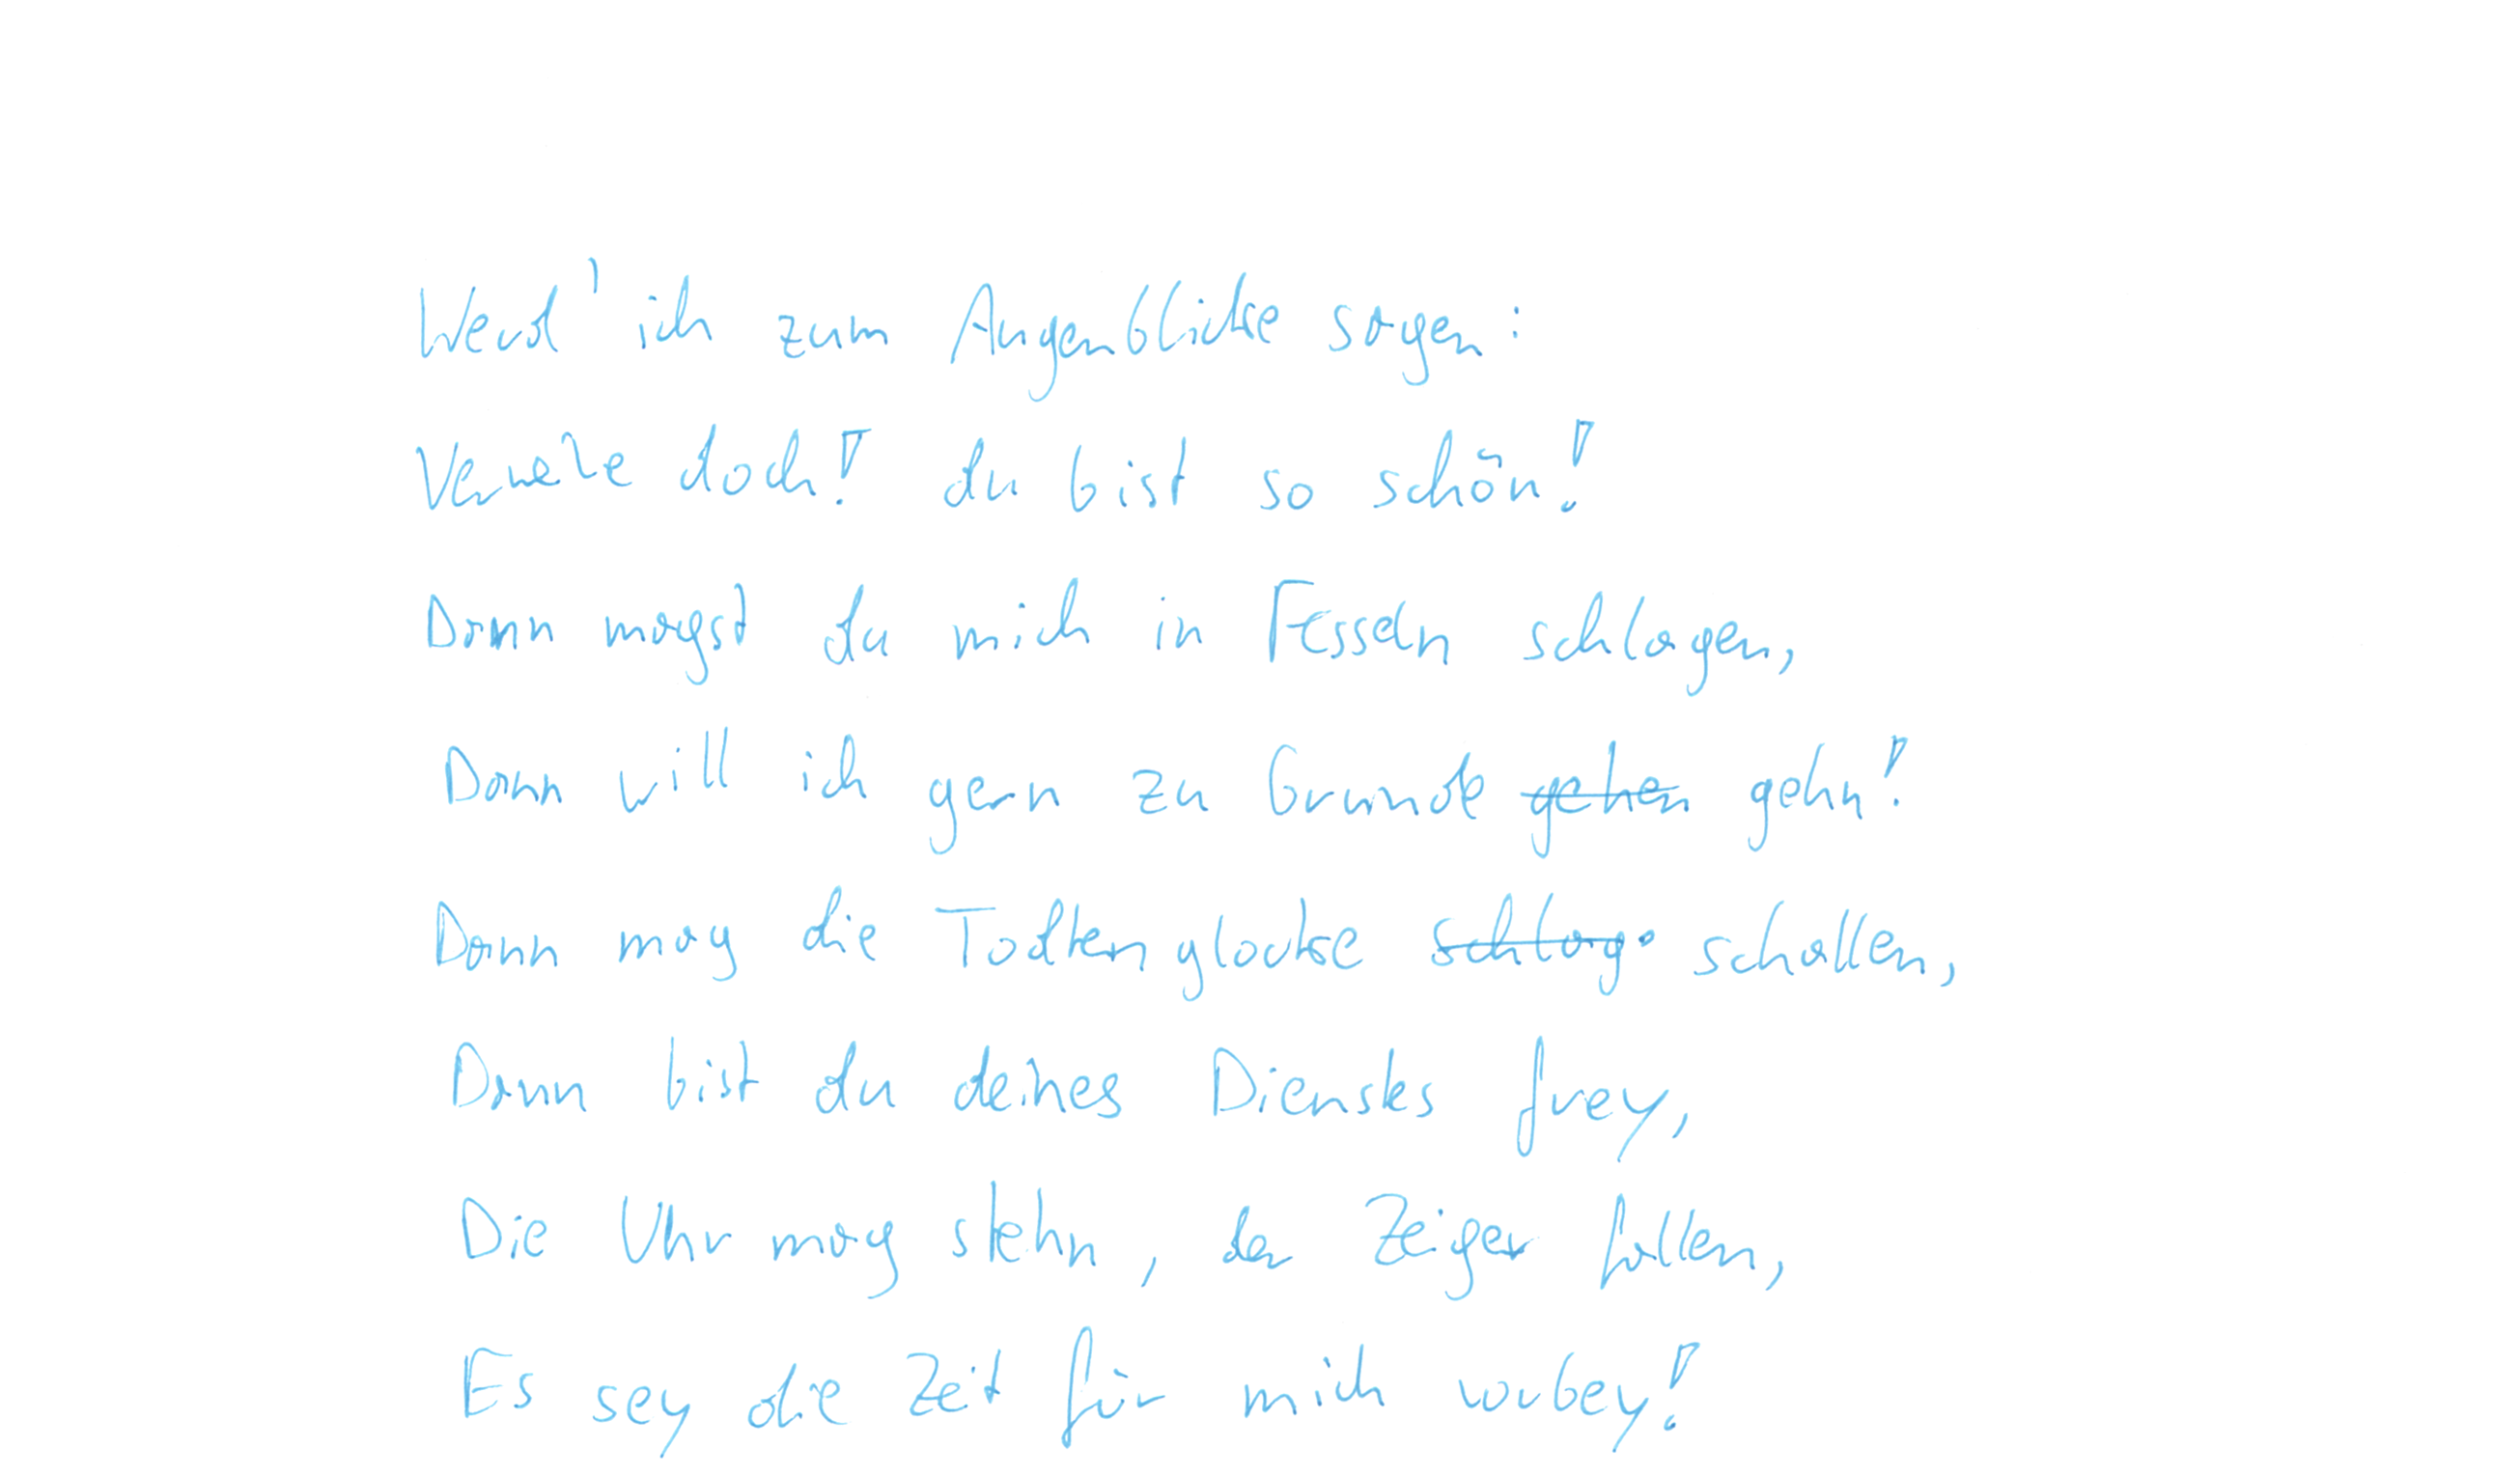 Werd' ich zum Augenblicke sagen:
Verweile doch! du bist so schön!
Dann magst du mich in Fesseln schlagen,
Dann will ich gern zu Grunde gehen gehn!
Dann mag die Todtenglocke schlag schallen,
Dann bist du deines Dienstes frey,
Die Uhr mag stehn, der Zeiger fallen,
Es sey die Zeit für mich vorbey!